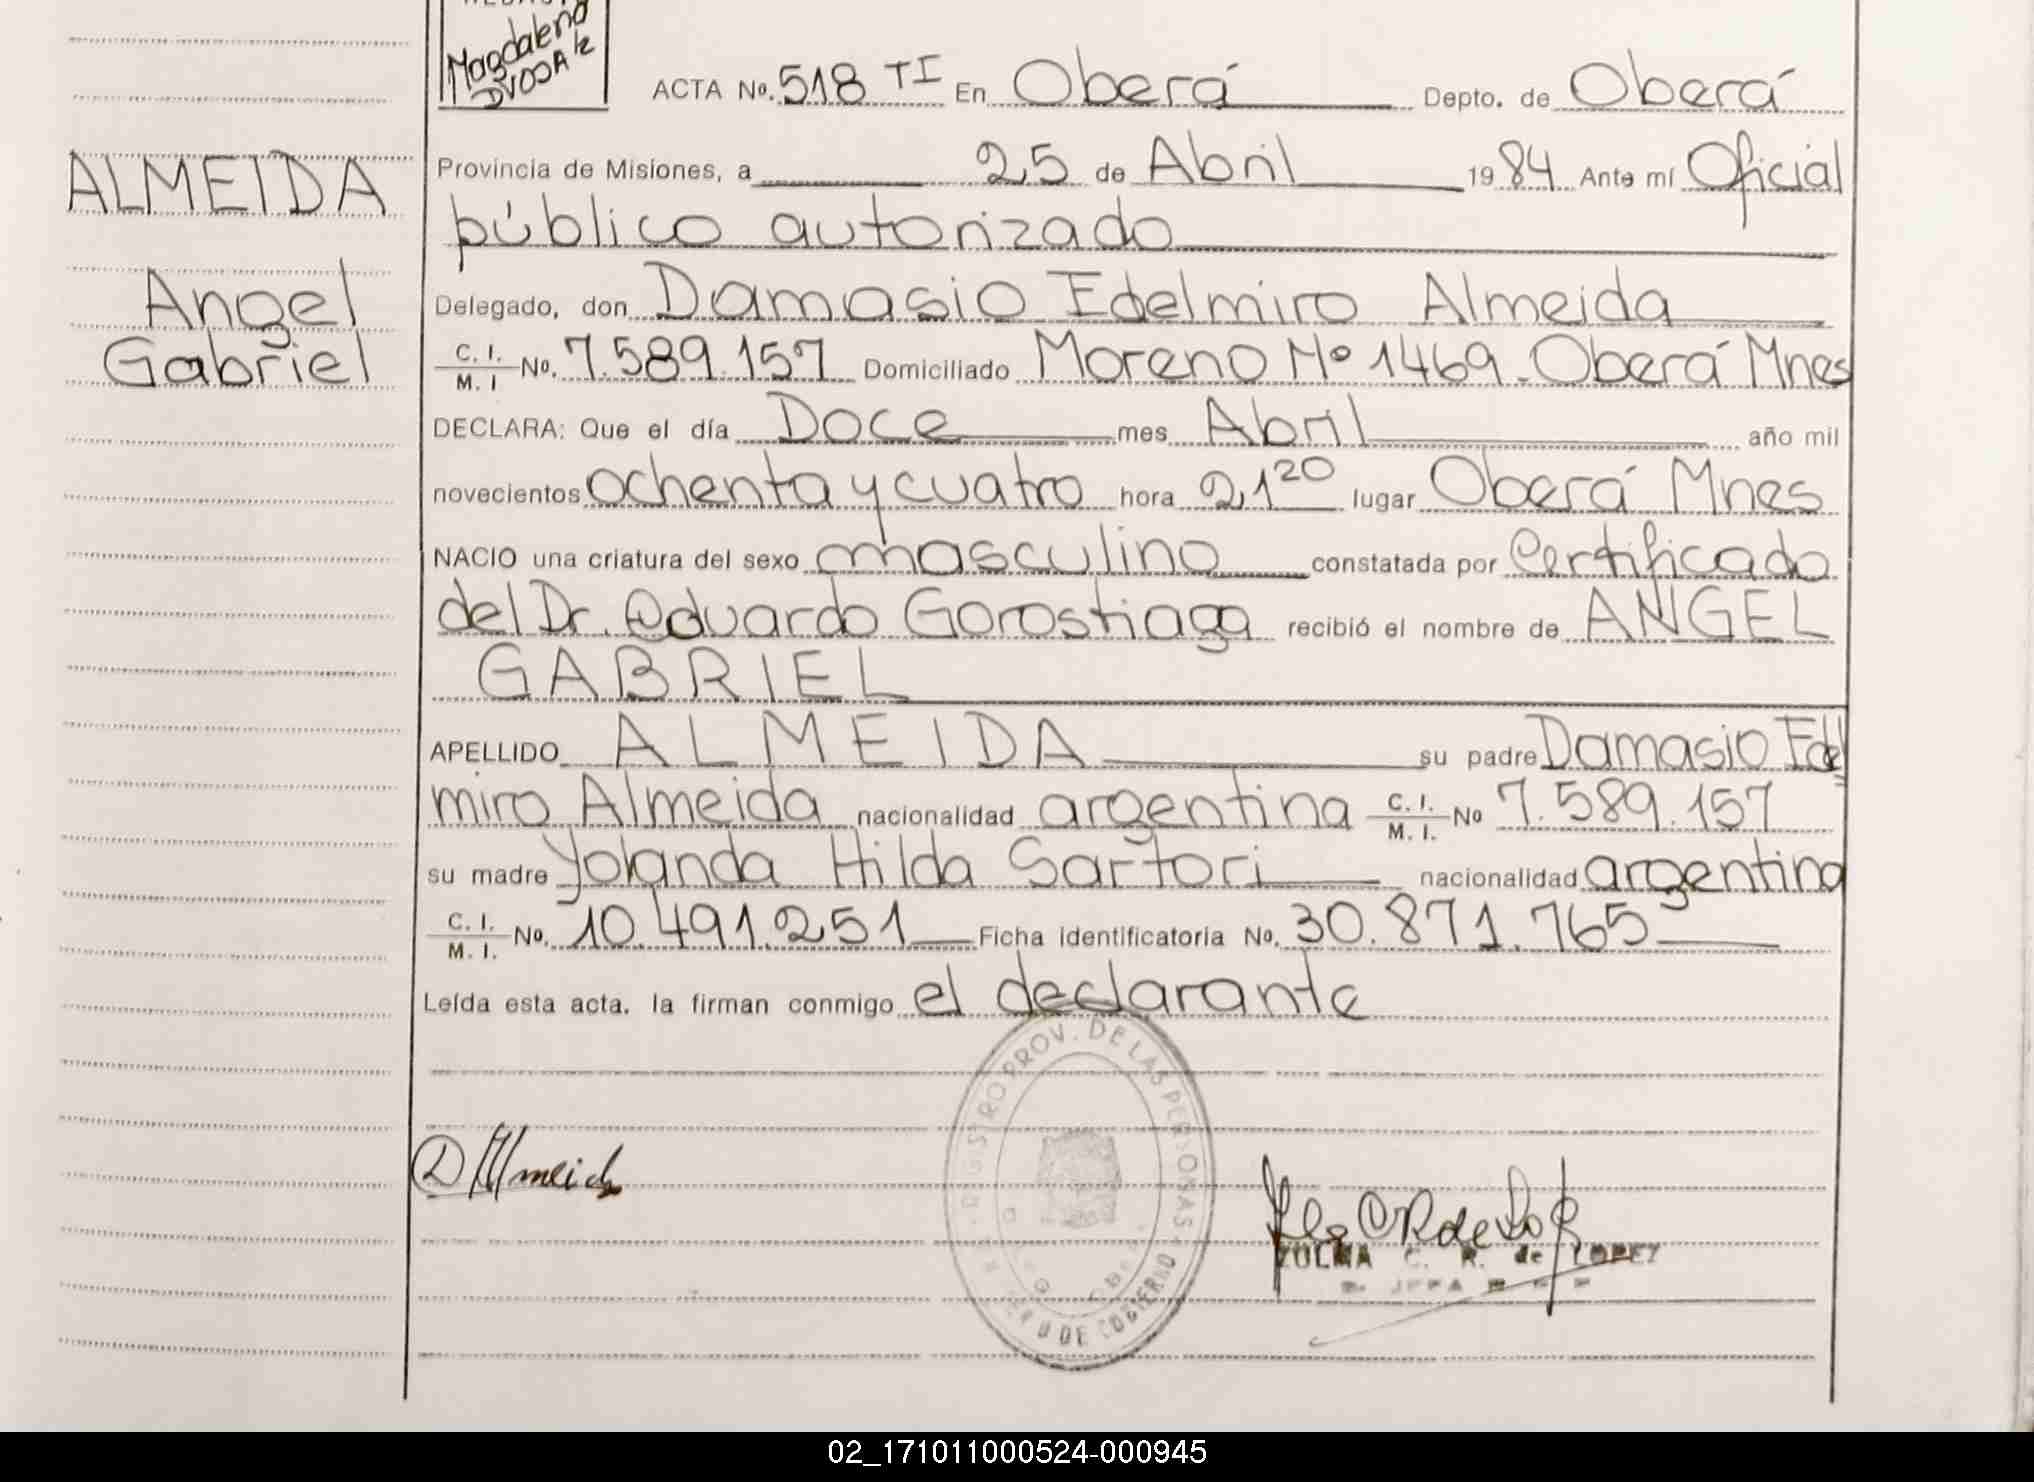 Magdalena
DVOJAK
ACTA No. 518 TI En Oberá Depto. de Oberá
ALMEIDA
Provincia de Misiones, a 25 de Abril 1984 Ante mí Oficial
público autorizado
Angel
Gabriel
Delegado, don Damasio Edelmiro Almeida
C. I. / M. I No. 7.589.157 Domiciliado Moreno Nº 1469 - Oberá Mnes
DECLARA: Que el día Doce mes Abril año mil
novecientos ochenta y cuatro hora 21 20 lugar Oberá Mnes
NACIO una criatura del sexo masculino constatada por Certificado
del Dr. Eduardo Gorostiaga recibió el nombre de ANGEL
GABRIEL
APELLIDO ALMEIDA su padre Damasio Edel
miro Almeida nacionalidad argentina C. I. / M. I. No 7.589.157
su madre Yolanda Hilda Sartori nacionalidad argentina
C. I. / M. I. No. 10.491.251 Ficha identificatoria No. 30.871.765
Leída esta acta, la firman conmigo el declarante
REGISTRO PROV. DE LAS PERSONAS
DE GOBIERNO
D Almeida
ZULMA C. R. de LOPEZ
02_171011000524-000945